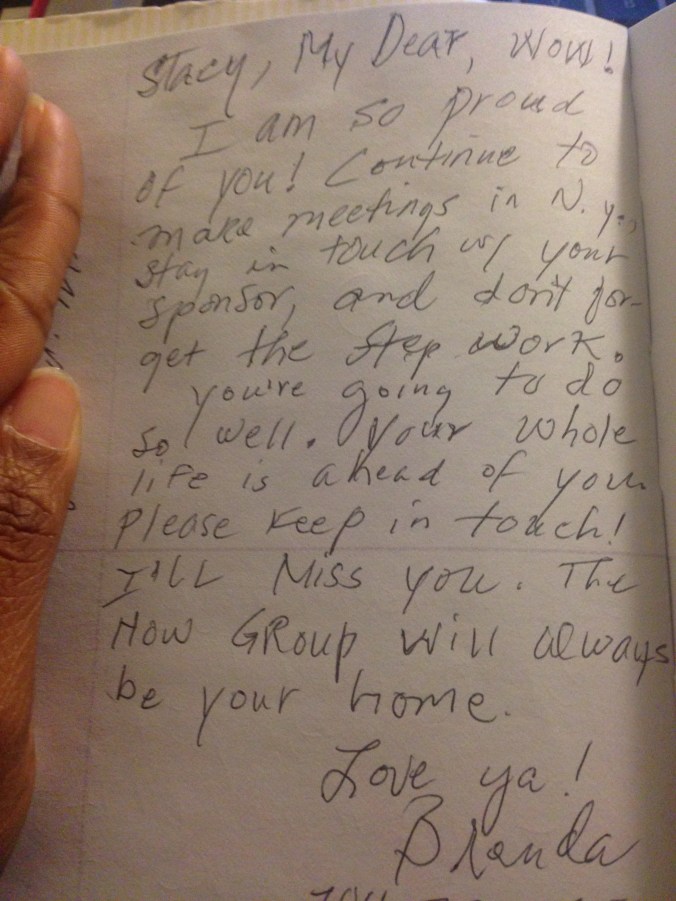 Stacy, My Dear, Wow!
I am so proud
of you! Continue to
make meetings in N.Y.,
stay in touch w/ your
sponsor, and don't for-
get the step work.
You're going to do
so well. Your whole
life is ahead of you.
Please keep in touch!
I'll Miss you. The
How Group will always
be your home.
Love ya!
Branda